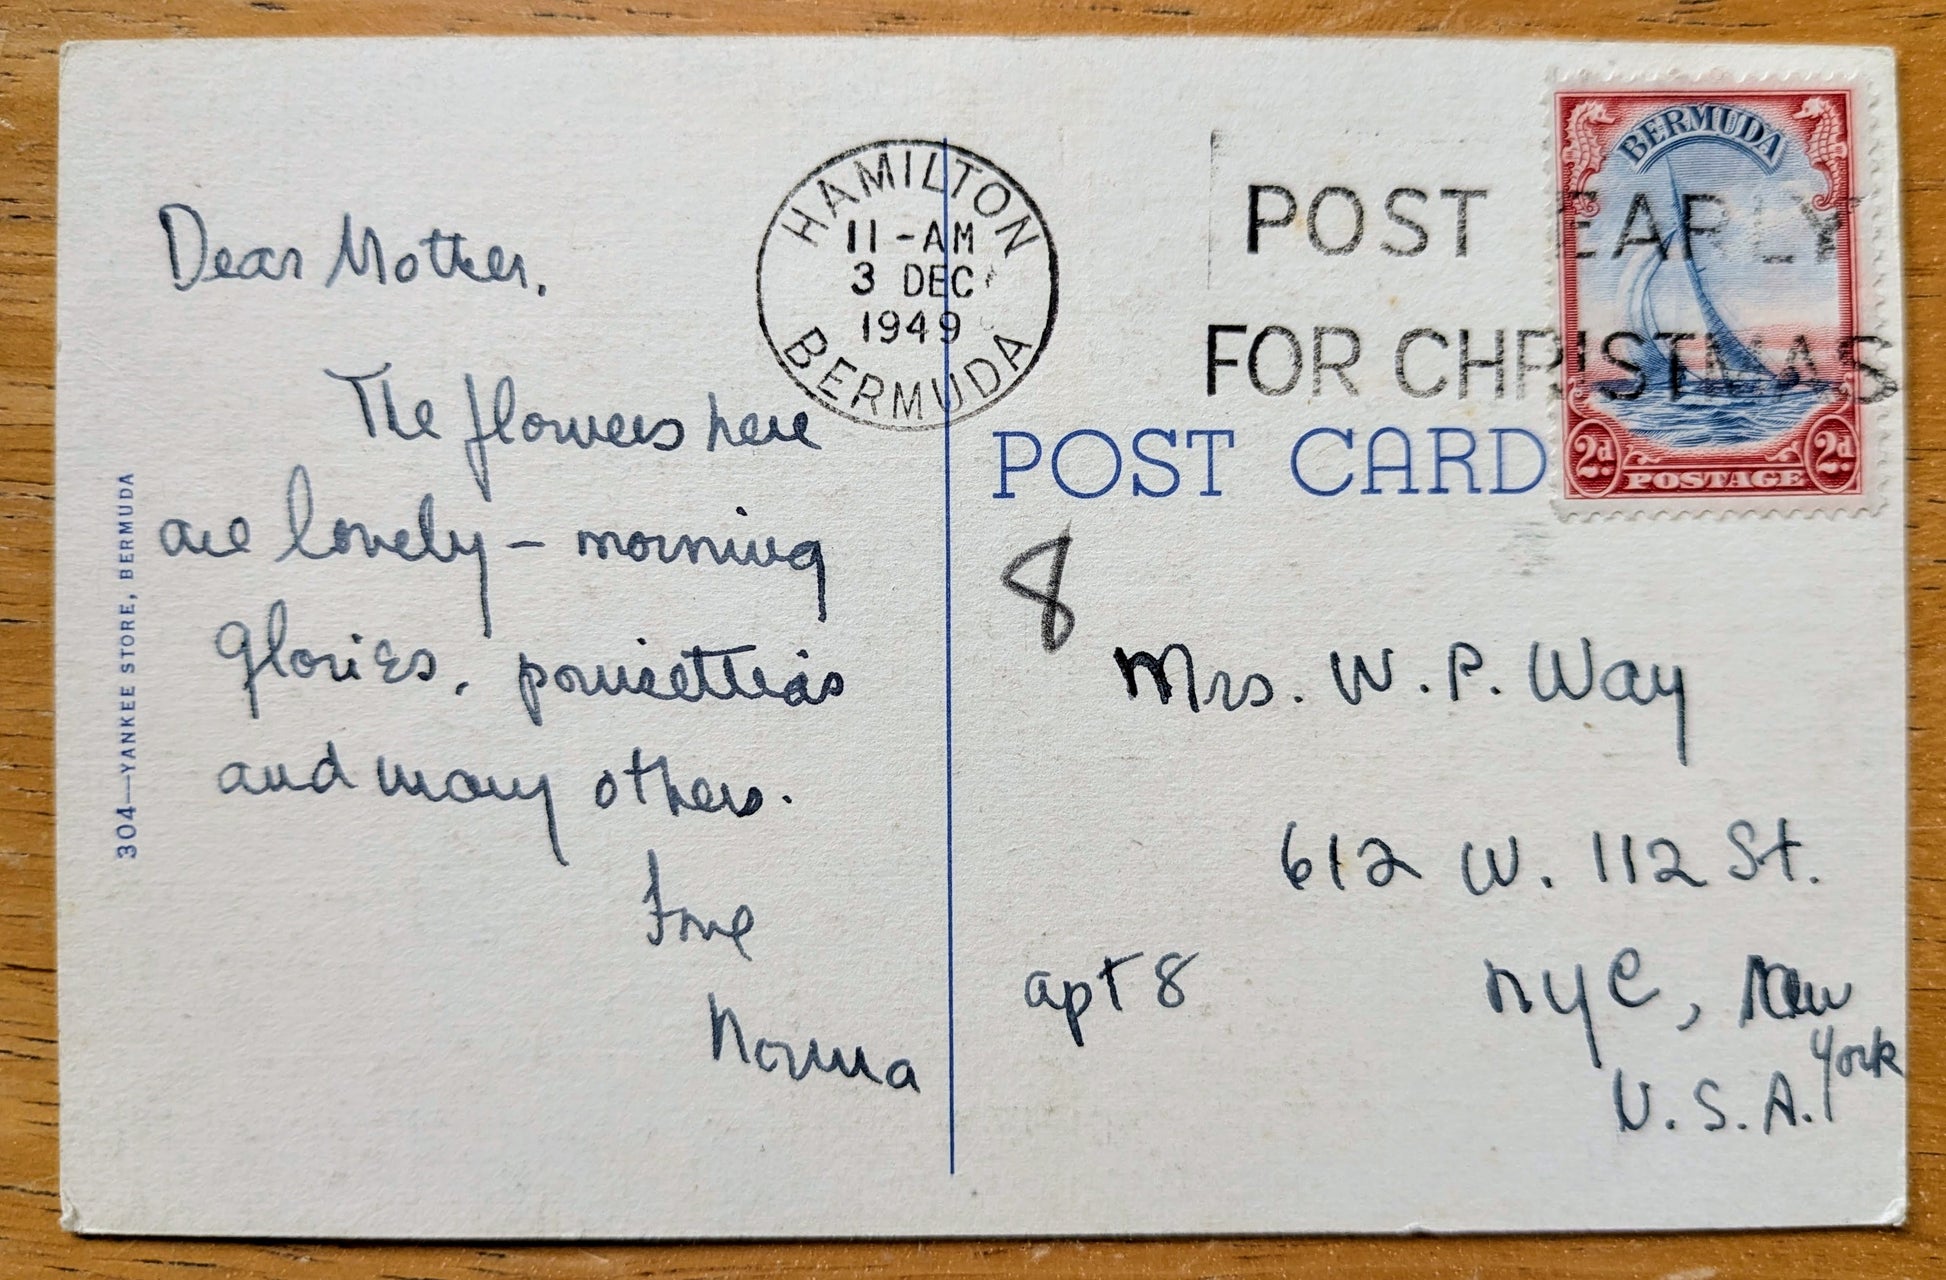 Dear Mother,
The flowers here
are lovely – morning
glories, poinsettias
and many others.
Love
Norma
304—YANKEE STORE, BERMUDA
HAMILTON
11-AM
3 DEC
1949
BERMUDA
POST EARLY
FOR CHRISTMAS
BERMUDA
2d. POSTAGE 2d.
POST CARD
8
Mrs. W. P. Way
612 W. 112 St.
apt 8
NYC, New
York
U.S.A.